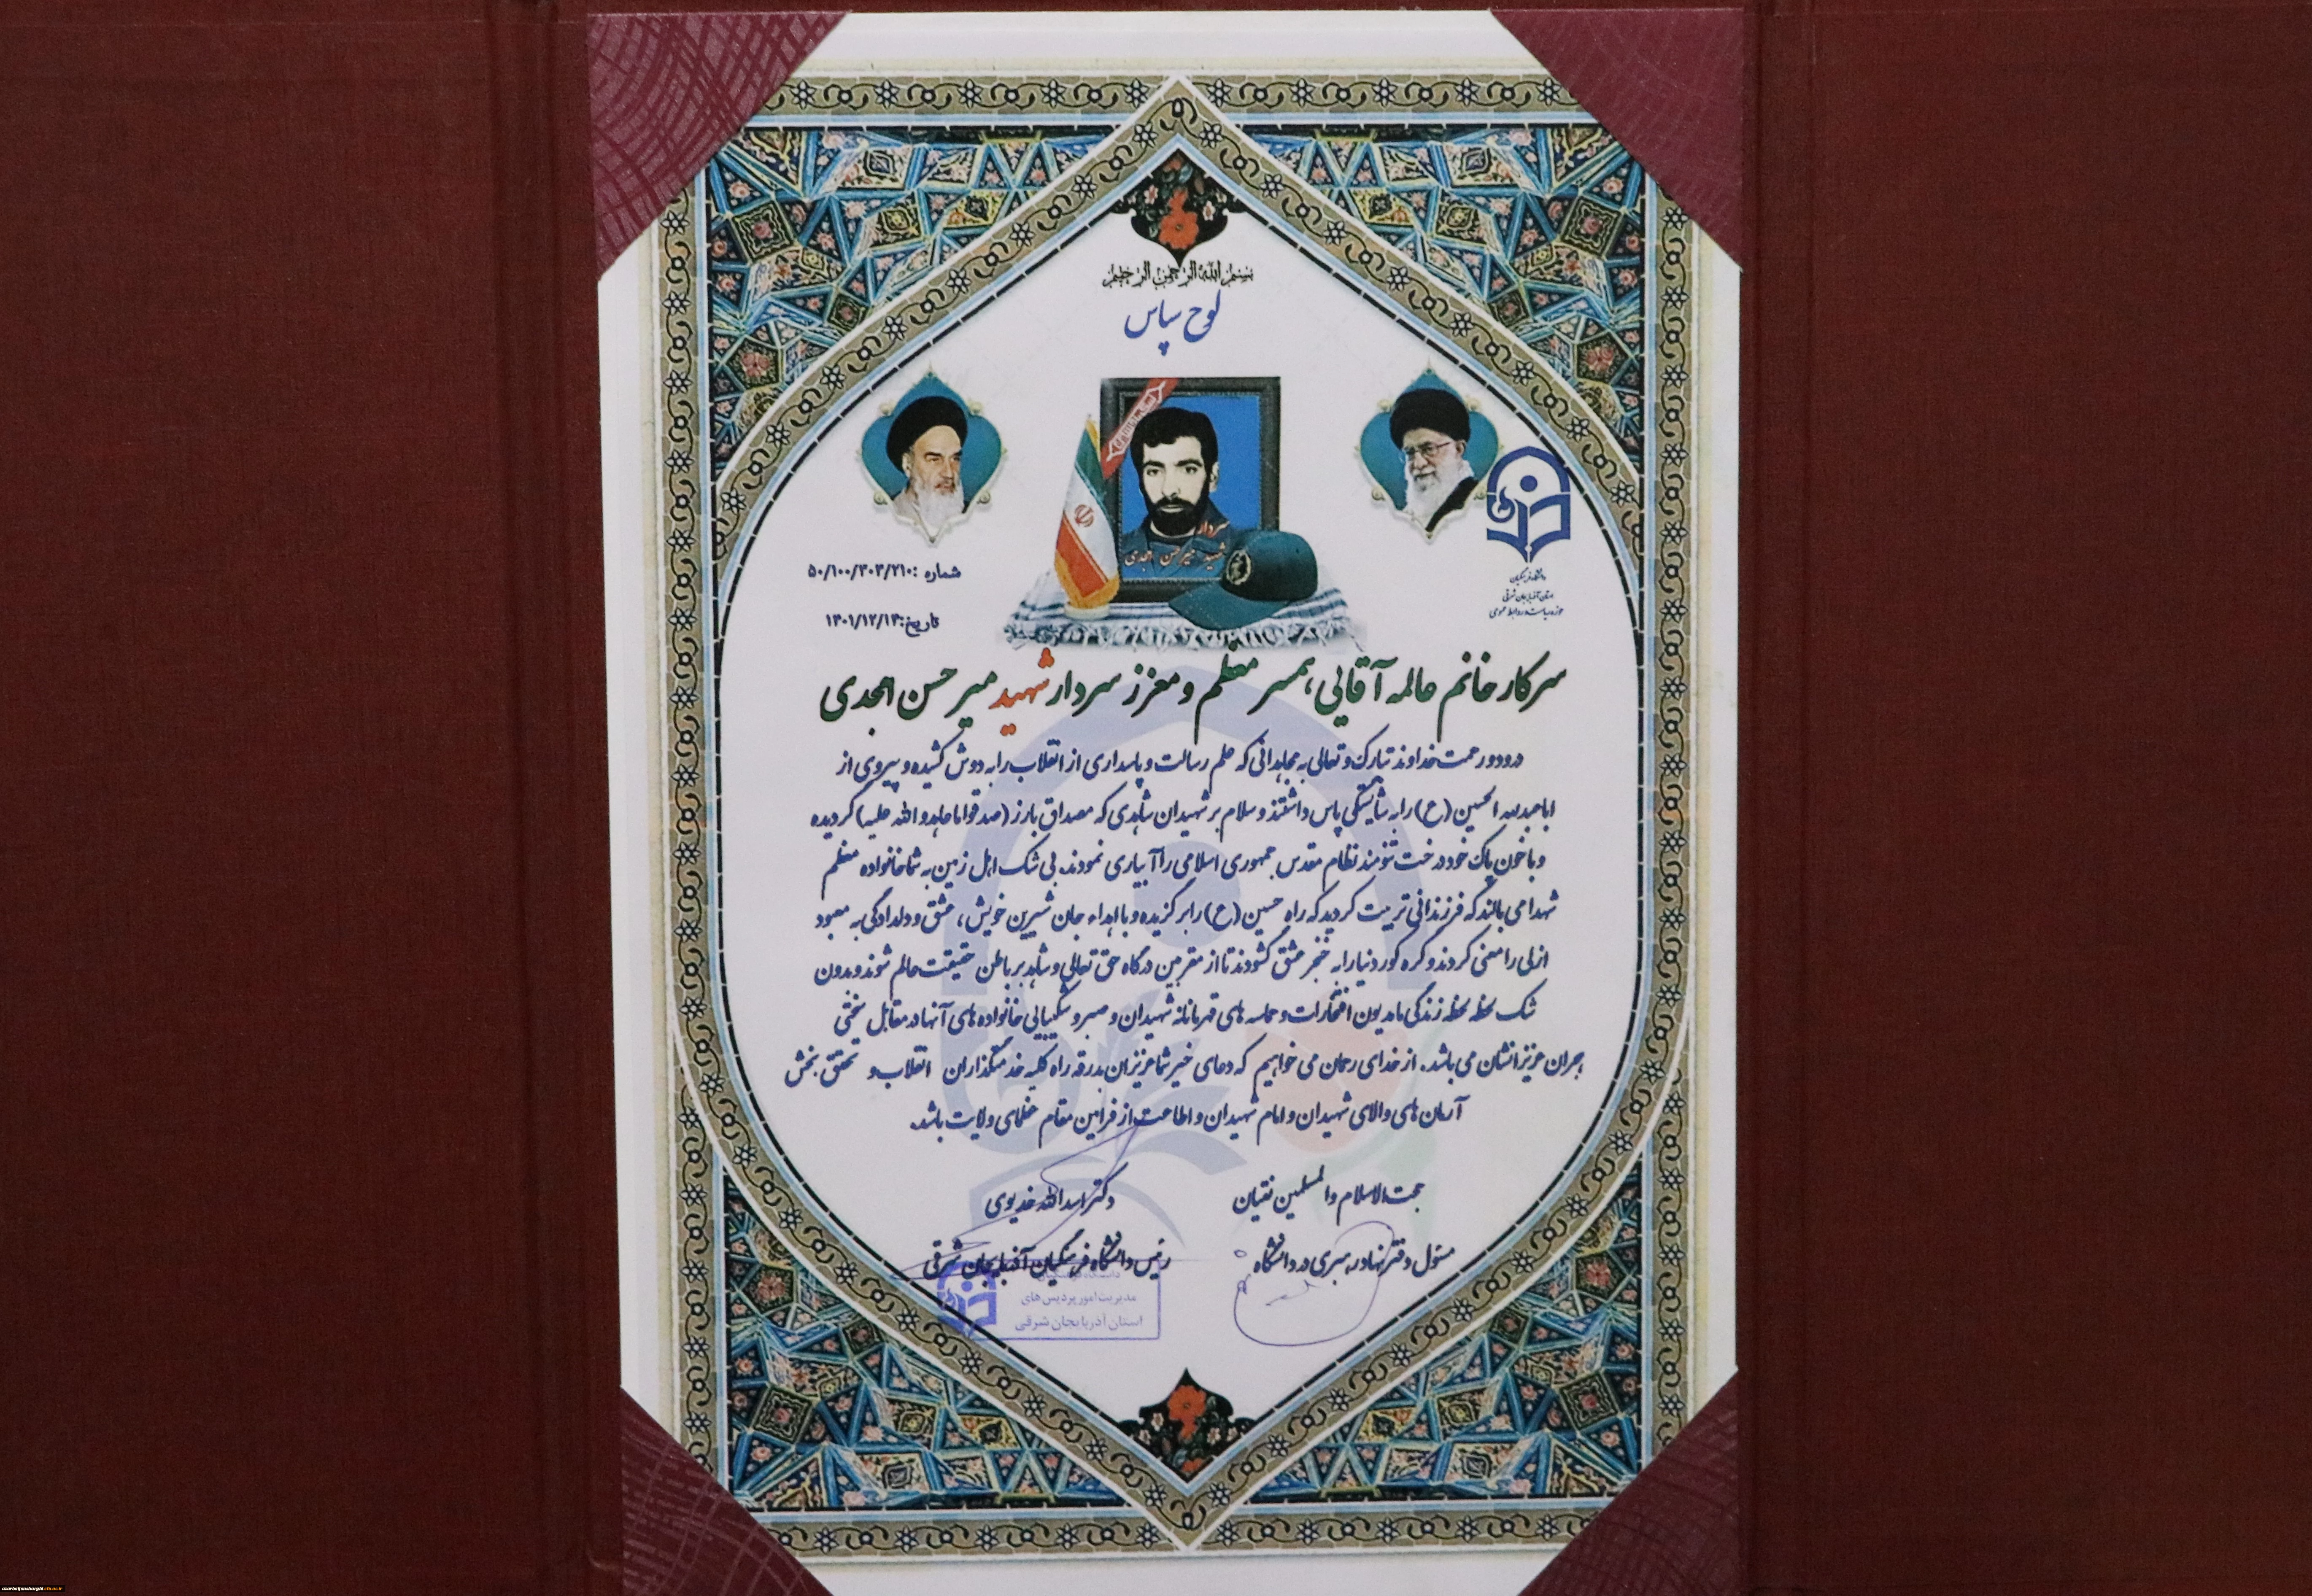 بسم الله الرحمن الرحیم
لوح سپاس
سردار
شهید میرحسن امجدی
شماره :۵۰/۱۰۰/۳۰۳/۲۱۰
تاریخ:۱۴۰۱/۱۲/۱۴
دانشگاه فرهنگیان
استان آذربایجان شرقی
حوزه ریاست و روابط عمومی
سرکار خانم عالمه آقایی، همسر معظم و معزز سردار شهید میر حسن امجدی
درود و رحمت خداوند تبارک و تعالی به مجاهدانی که علم رسالت و پاسداری از انقلاب را به دوش کشیده و پیروی از
اباعبدالله الحسین (ع) را به شایستگی پاس داشتند و سلام بر شهیدان شاهدی که مصداق بارز (صدقوا ما عاهدو الله علیه) گردیده
و با خون پاک خود درخت تنومند نظام مقدس جمهوری اسلامی را آبیاری نمودند. بی شک اهل زمین به شما خانواده معظم
شهدا می بالند که فرزندانی تربیت کردید که راه حسین (ع) را برگزیده و با اهداء جان شیرین خویش، عشق و دلدادگی به معبود
ازلی را معنی کردند و گره کور دنیا را به خنجر عشق گشودند تا از مقربین درگاه حق تعالی و شاهد بر باطن حقیقت عالم شوند و بدون
شک لحظه لحظه زندگی ما مدیون افتخارات و حماسه های قهرمانانه شهیدان و صبر و شکیبایی خانواده های آنها در مقابل سختی
هجران عزیزانشان می باشد. از خدای رحمان می خواهیم که دعای خیر شما عزیزان بدرقه راه کلیه خدمتگذاران انقلاب و تحقق بخش
آرمان های والای شهیدان و امام شهیدان و اطاعت از فرامین مقام عظمای ولایت باشد.
حجت الاسلام والمسلمین نقیان
مسئول دفتر نهاد رهبری در دانشگاه
دکتر اسدالله خدیوی
رئیس دانشگاه فرهنگیان آذربایجان شرقی
مدیریت امور پردیس های
استان آذربایجان شرقی
azarbaijansharghi.cfu.ac.ir